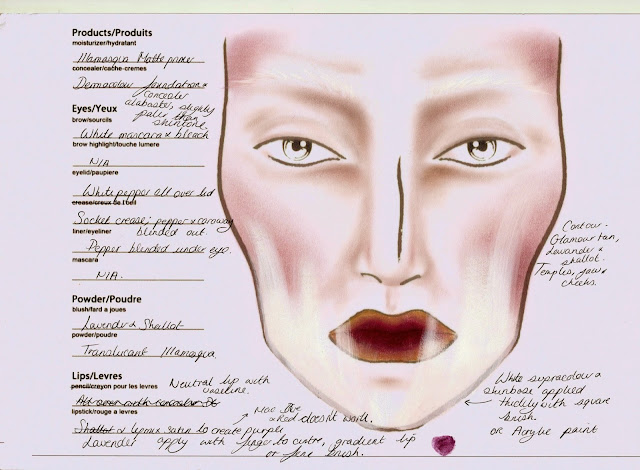 Products/Produits
moisturizer/hydratant
Mamaaqua Matte primer
concealer/cache-cremes
Dermacolour foundation &
concealer
alabaster, slightly
paler than
skintone.
Eyes/Yeux
brow/sourcils
White mascara & bleach
brow highlight/touche lumere
N/A
eyelid/paupiere
White pepper all over lid
crease/creux de l'oeil
Socket crease; pepper & caraway
blended out.
liner/eyeliner
Pepper blended under eye.
mascara
N/A.
Powder/Poudre
blush/fard a joues
Lavender & Shallot
powder/poudre
Translucent Mamaaqua
Lips/Levres
pencil/crayon pour les levres
Neutral lip with
vaseline.
All over with concealer
lipstick/rouge a levres
Mac
& Red doesn't work.
Shallot & satin to create purple
Lavender apply with finger to centre, gradient lip
or fine brush.
Contour -
Glamour tan,
Lavender &
shallot.
Temples, jaw &
cheeks.
White supracolour &
skinbase applied
thickly with square
brush
or Acrylic paint